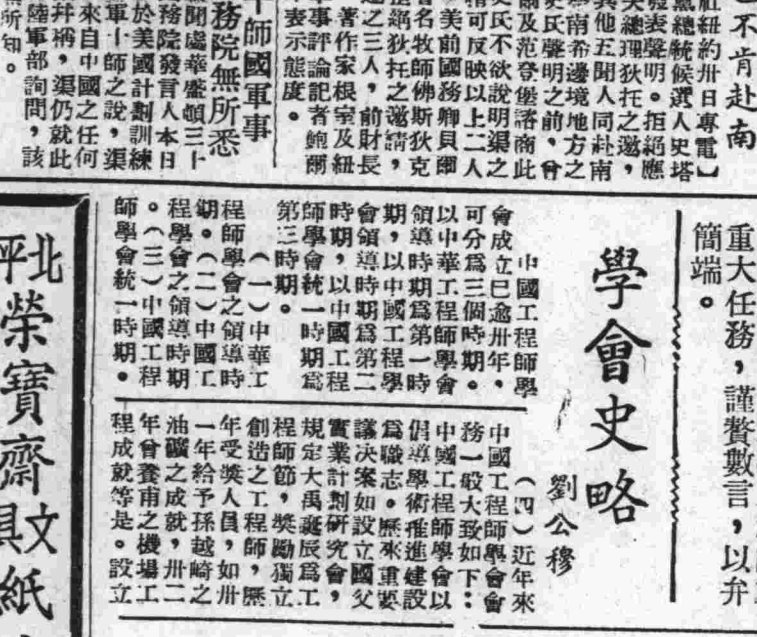 也不肯赴南
社紐約卅日專電〕
黨總統候選人史塔
發表聲明。拒絕應
總理狄托之邀,
其他五聞人同赴南
南希邊境地方之
史氏聲明之前,曾
爾及范登堡諮商此
史氏不欲說明渠之
可反映以上二人
美前國務卿貝爾
名牧師佛斯狄克
絕狄托之邀請,
之三人,前財長
著作家根室及紐
事評論記者鮑爾
表示態度。
十師國軍事
務院無所悉
聞處華盛頓三十
務院發言人本日
於美國計劃訓練
軍十師之說,渠
來自中國之任何
并稱,渠仍就此
陸軍部詢問,該
所知。
重大任務,謹贅數言,以弁
簡端。
學會史略
劉公穆
中國工程師學
會成立已逾卅年,
可分爲三個時期。
以中華工程師學會
領導時期爲第一時
期,以中國工程學
會領導時期爲第二
時期,以中國工程
師學會統一時期爲
第三時期。
(一)中華工
程師學會之領導時
期。(二)中國工
程學會之領導時期
。(三)中國工程
師學會統一時期。
(四)近年來
中國工程師學會會
務一般大致如下:
中國工程師學會以
倡導學術推進建設
爲職志。歷來重要
議决案如設立國父
實業計劃研究會,
規定大禹誕辰爲工
程師節,獎勵獨立
創造之工程師,歷
年受獎人員,如卅
一年給予孫越崎之
油礦之成就,卅二
年曾養甫之機場工
程成就等是。設立
北平
榮寶齋
文具
紙